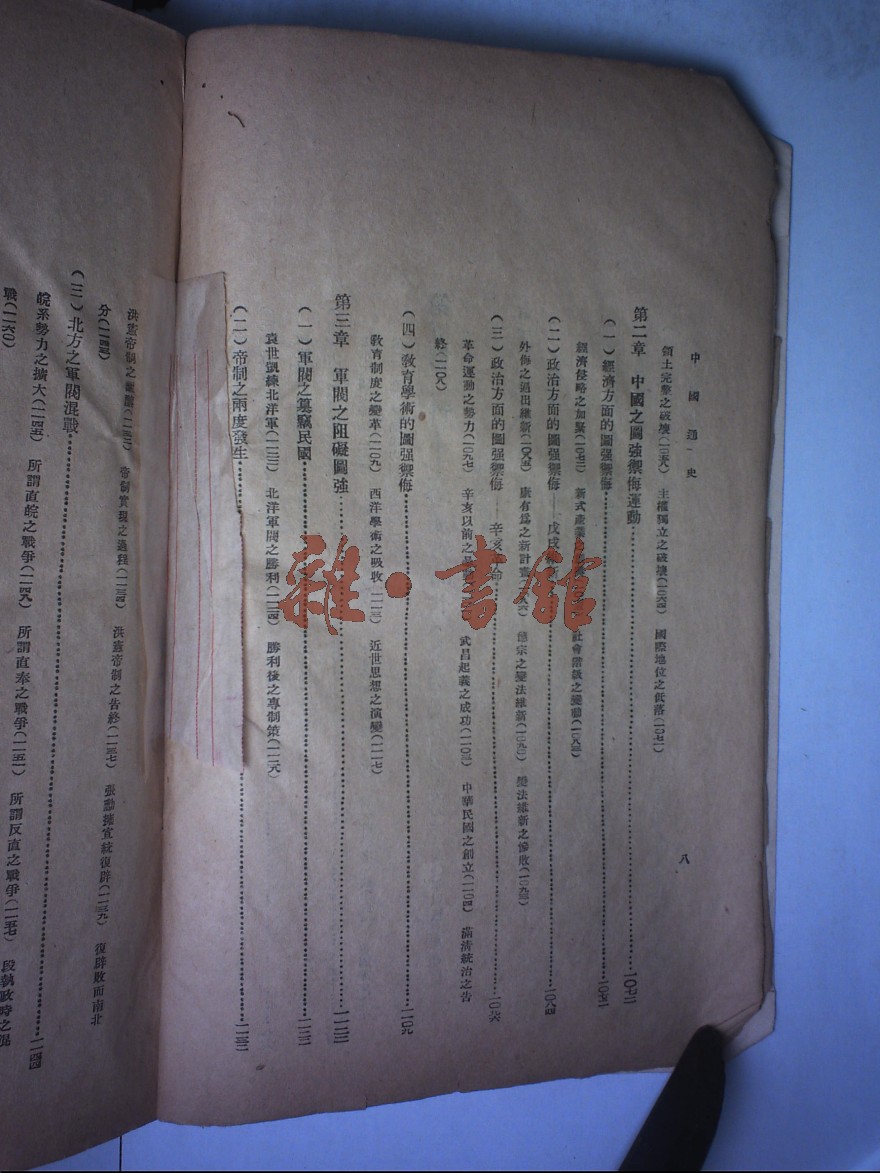 中國通史
八
領土完整之破壞(一〇五九) 主權獨立之破壞(一〇六四) 國際地位之低落(一〇七一)
第二章 中國之圖強禦侮運動……一〇七二
(一)經濟方面的圖強禦侮……一〇七二
經濟侵略之加緊(一〇七二) 新式產業 社會階級之變動(一〇八三)
(二)政治方面的圖強禦侮——戊戌……一〇八四
外侮之逼出維新 康有爲之新計畫 德宗之變法維新 變法維新之慘敗
(三)政治方面的圖强禦侮——辛亥 命……一〇九六
革命運動之勢力(一〇九七) 辛亥以前之 武昌起義之成功(一一〇三) 中華民國之創立(一一〇四) 滿清統治之告
終(一一〇八)
(四)敎育學術的圖强禦侮……一一〇九
敎育制度之變革(一一〇九) 西洋學術之吸收(一一一三) 近世思想之演變(一一一七)
第三章 軍閥之阻礙圖強……一一二二
(一)軍閥之纂竊民國……一一二二
袁世凱練北洋軍(一一二二) 北洋軍閥之勝利(一一二四) 勝利後之專制策(一一二八)
(二)帝制之兩度發生……一一三二
洪憲帝制之 帝制實現之過程(一一三四) 洪憲帝制之告終(一一三七) 張勳擁宣統復辟(一一三九) 復辟敗而南北
分(一一四三)
(三)北方之軍閥混戰……一一四四
皖系勢力之擴大(一一四五) 所謂直皖之戰爭(一一四九) 所謂直奉之戰爭(一一五一) 所謂反直之戰爭(一一五七) 段執政時之混
戰(一一六〇)
雜·書館